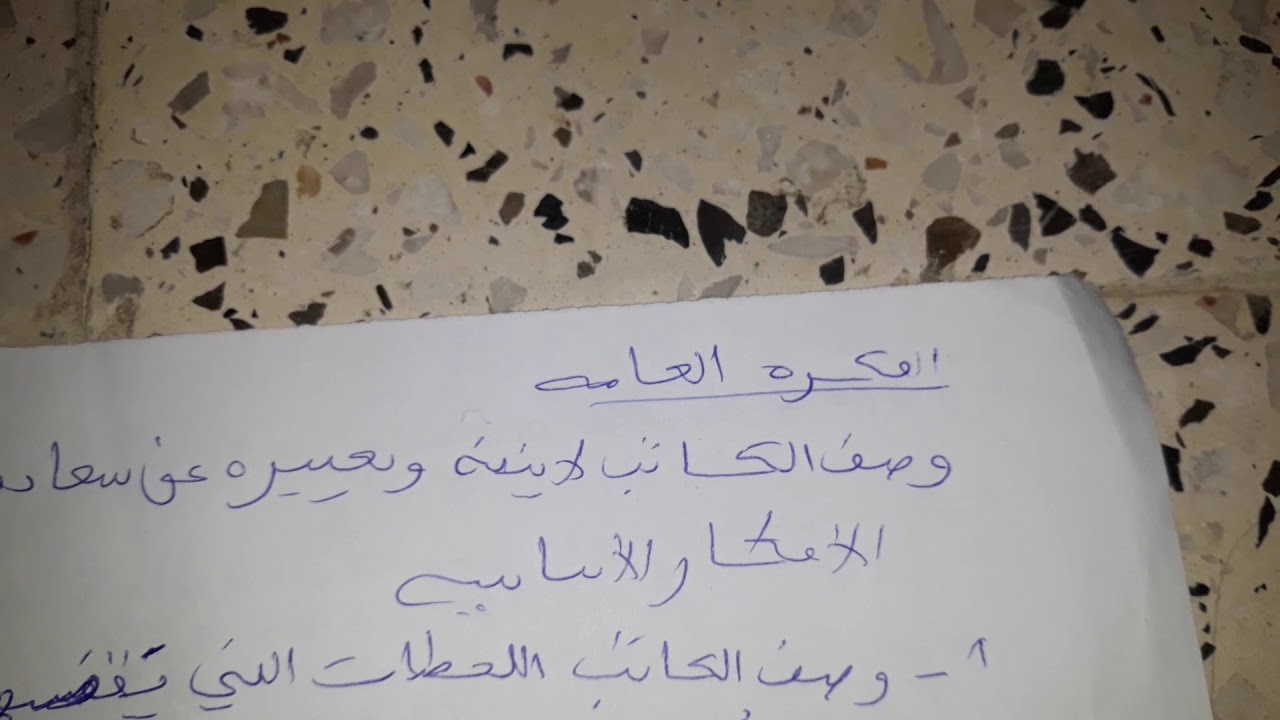 الفكره العامه
وصف الكاتب لابنته وتعبيره عن سعاد
الأفكار الأساسيه
١- وصف الكاتب اللحظات التي